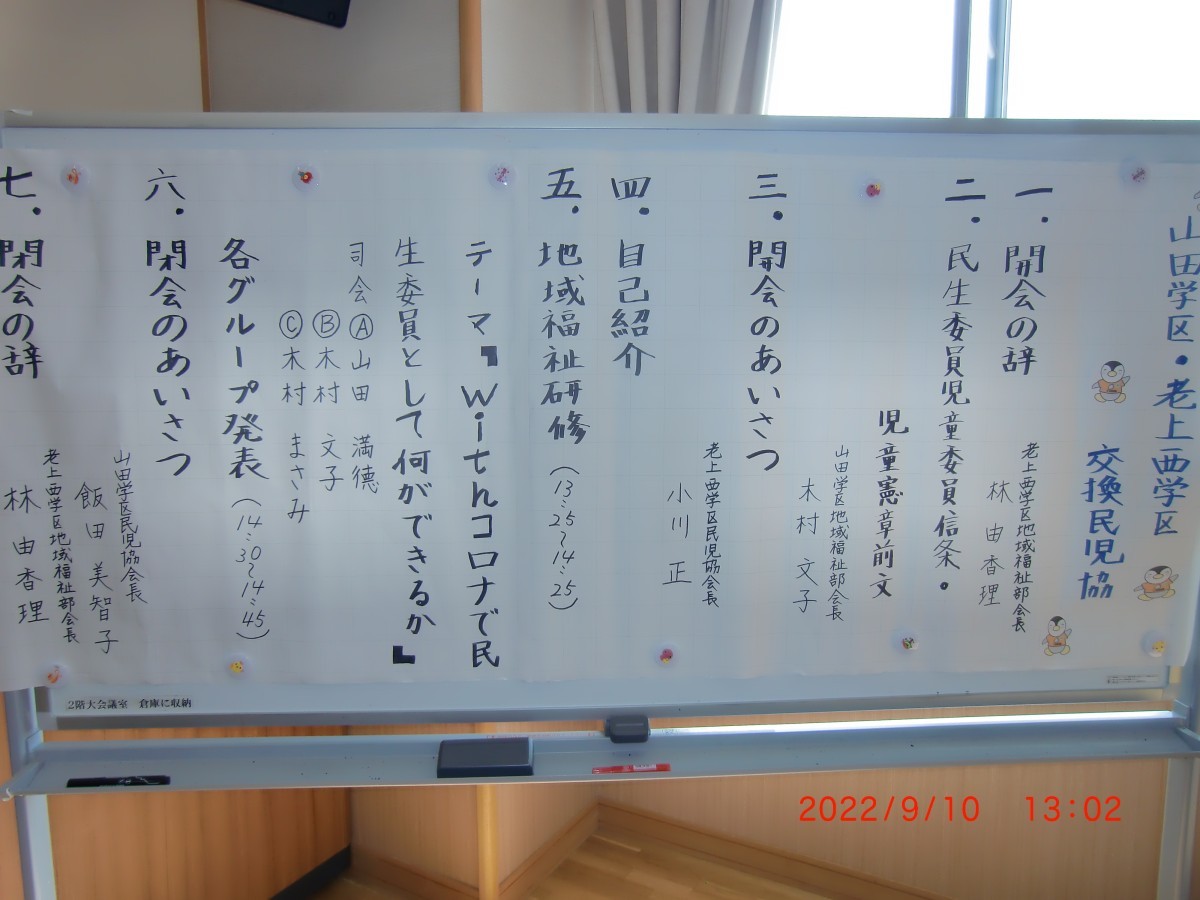 山田学区・老上西学区
交換民児協
一.開会の辞
老上西学区地域福祉部会長
林 由香理
二.民生委員児童委員信条。
児童憲章前文
山田学区地域福祉部会長
木村 文子
三.開会のあいさつ
老上西学区民児協会長
小川 正
四.自己紹介
五.地域福祉研修(13:25〜14:25)
テーマ『Withコロナで民
生委員として何ができるか』
司会Ⓐ山田 満徳
Ⓑ木村 文子
Ⓒ木村 まさみ
各グループ発表(14:30〜14:45)
六.閉会のあいさつ
山田学区民児協会長
飯田 美智子
七.閉会の辞
老上西学区地域福祉部会長
林 由香理
2階大会議室 倉庫に収納
2022/9/10 13:02